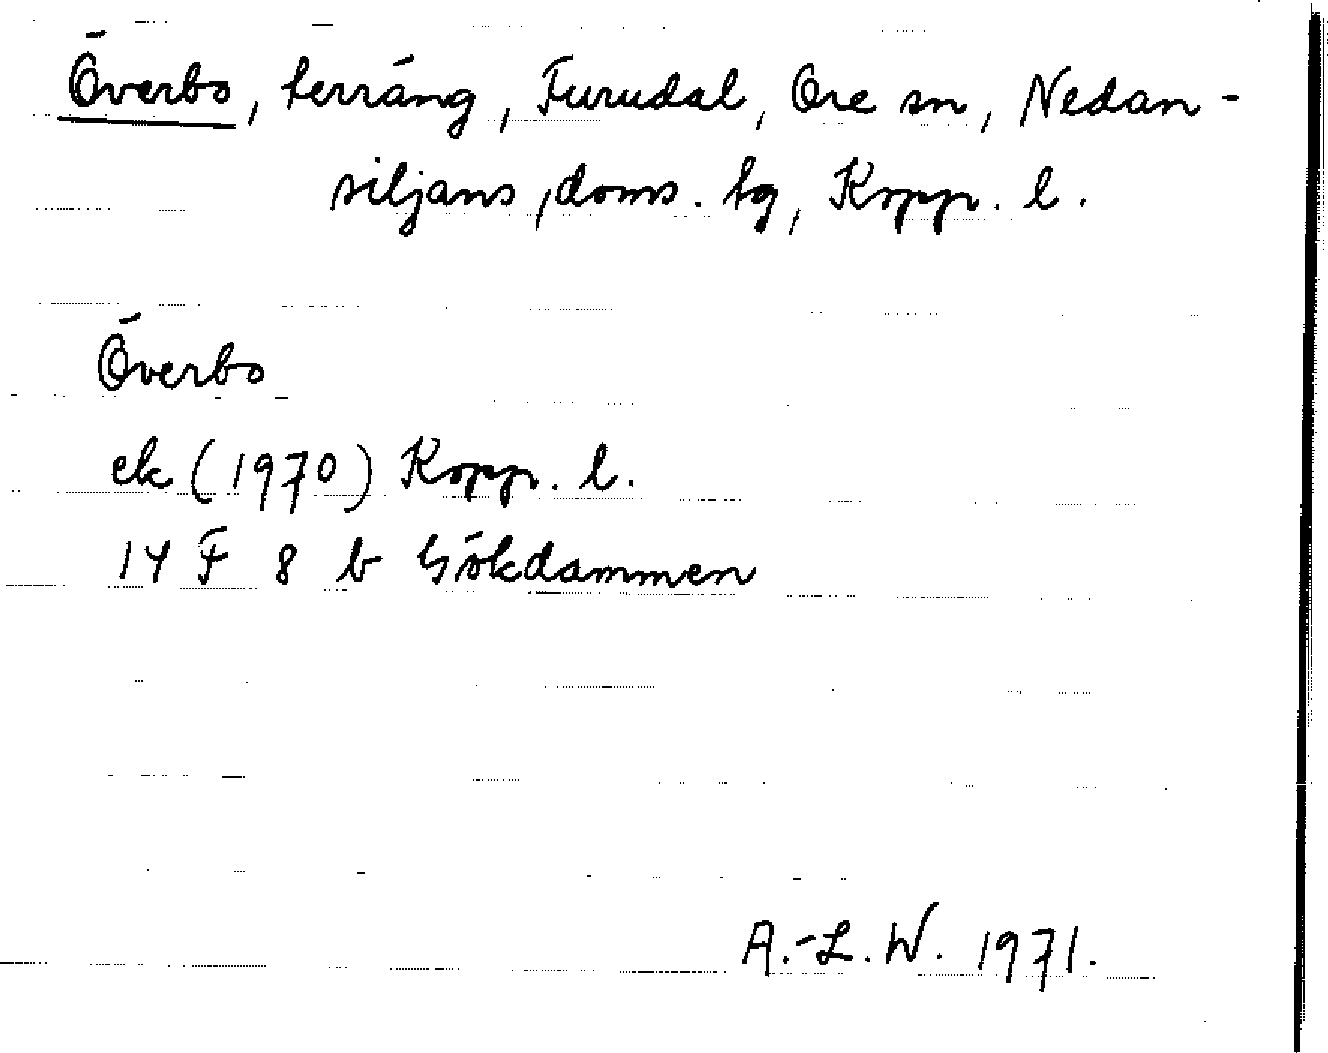 Överbo, terräng, Furudal, Ore sn, Nedan-
siljans, doms. tg, Kopp. l.
Överbo
ek (1970) Kopp. l.
14 F 8 b Gökdammen
A.-L. W. 1971.